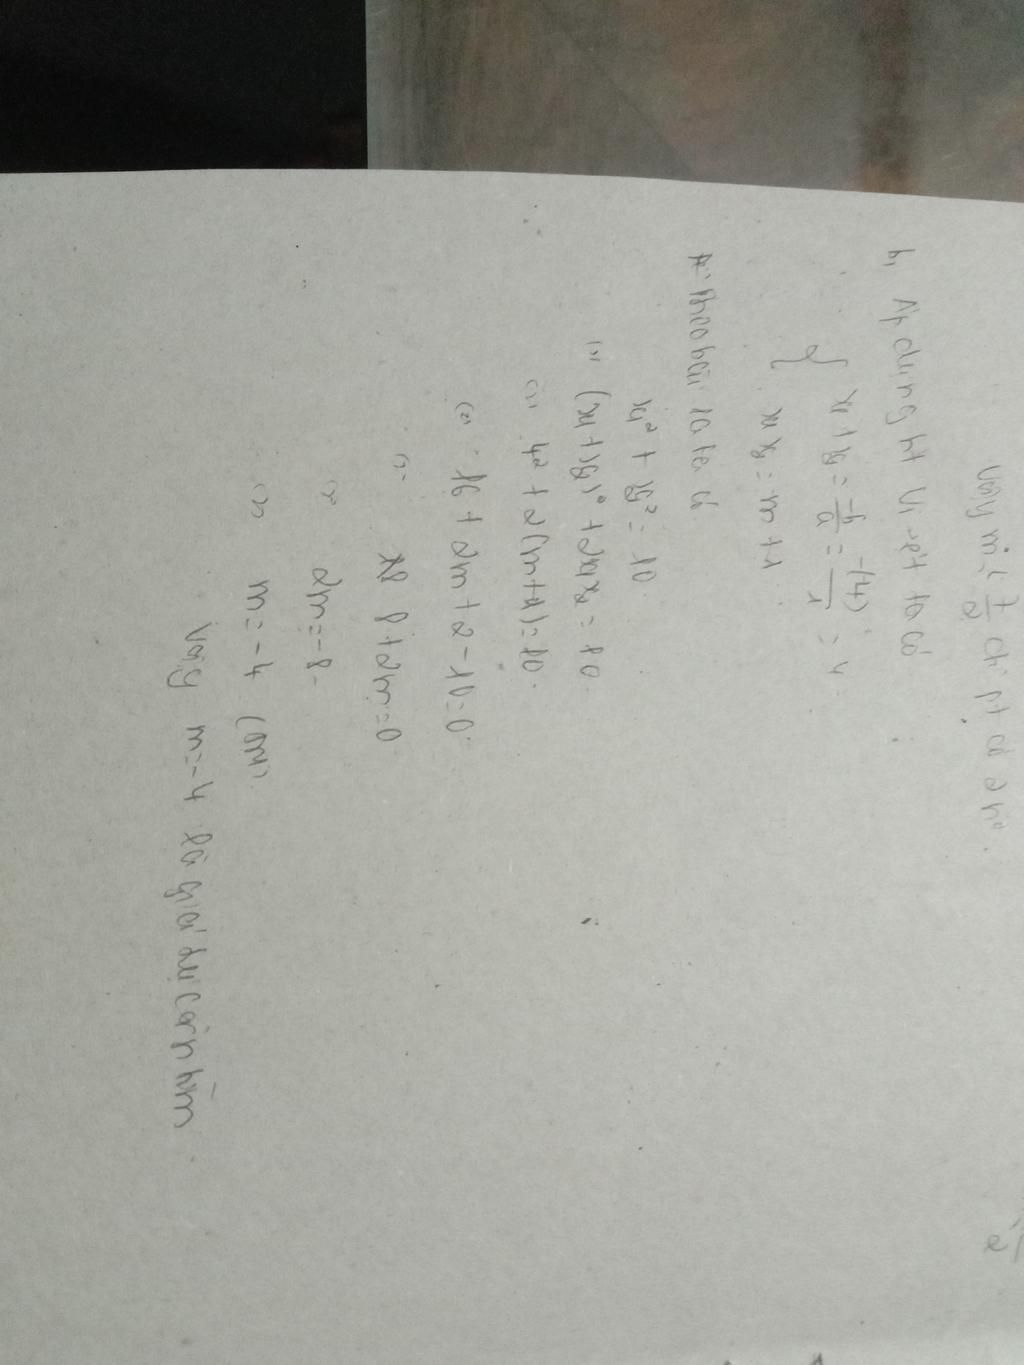 Vậy m ≤ 7/2 thì pt có 2 n⁰
b, Áp dụng ht Vi-ét ta có
{ x₁ + x₂ = -b/a = -(-4)/1 = 4
x₁x₂ = m+1
Theo bài ra ta có
x₁² + x₂² = 10
(=) (x₁ + x₂)² + 2x₁x₂ = 10
(=) 4² + 2(m+1) = 10
(=) 16 + 2m + 2 - 10 = 0
(=) 8 + 2m = 0
(=) 2m = -8
(=) m = -4 (tm)
Vậy m = -4 là giá trị cần tìm